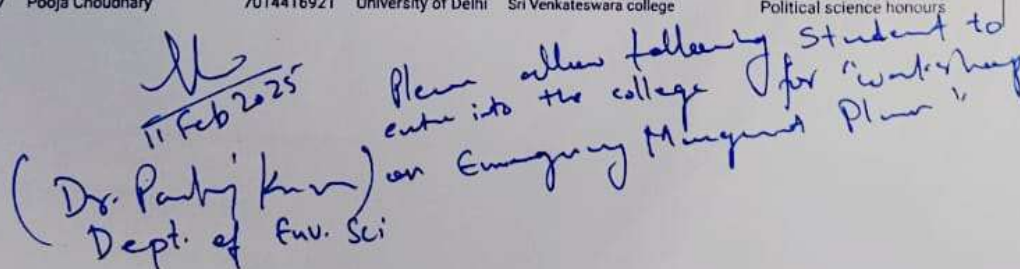 Pooja Choudhary 7014416921 University of Delhi Sri Venkateswara college Political science honours
11 Feb 2025
Please allow following Student to
enter into the college for "workshop
on Emergency Mangemnt Plan"
(Dr. Pankaj Kumar)
Dept. of Env. Sci